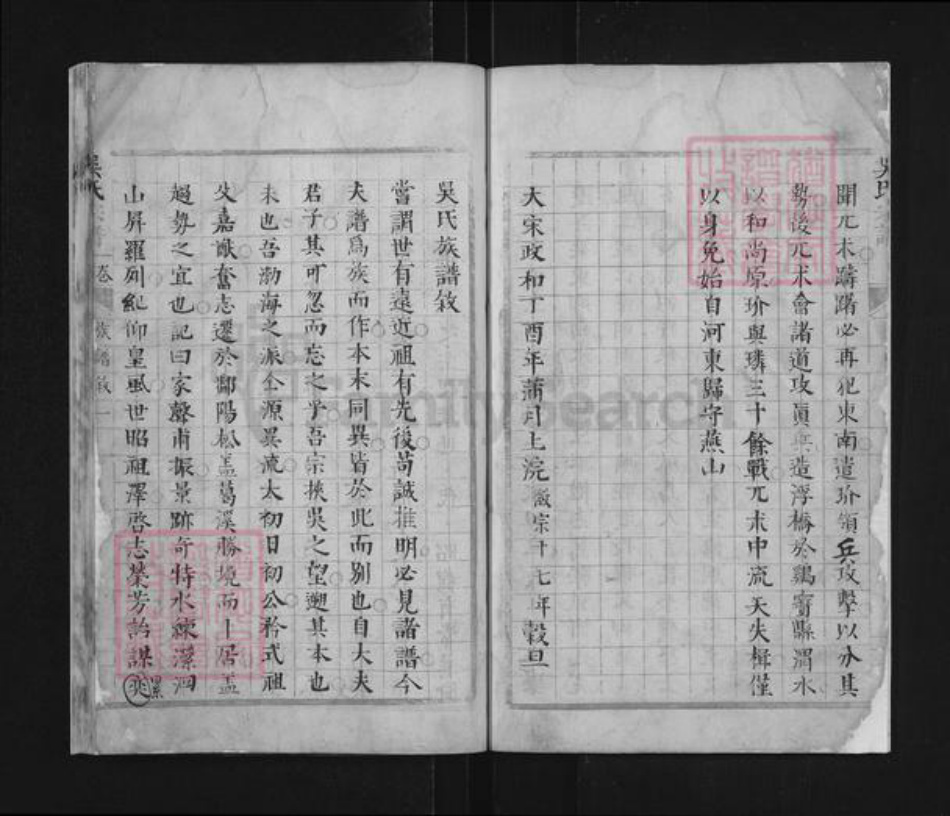 聞兀朮躊躇必再犯東南遣玠領兵攻擊以分其
勢後兀朮會諸道攻真兵造浮橋於鷄寳縣渭水
以和尚原玠與璘三十餘戰兀朮中流矢失楫僅
以身免始自河東歸守燕山
大宋政和丁酉年蒲月上浣徽宗十七年榖旦
吳氏族譜敘
嘗謂世有遠近祖有先後苟誠推明必見諸譜今
夫譜爲族而作本末同異皆於此而别也自大夫
君子其可忽而忘之乎吾宗挾吳之望遡其本也
未也吾渤海之派仝源異流太初日初公矜式祖
父嘉猷奮志遷於鄱陽松盖葛溪勝境而卜居盖
趨勢之宜也記曰家聲甫振景跡奇特水練瀠洄
山屏羅列紀仰皇風世昭祖澤啓志榮芳詒謀奕
累
吳氏
卷一
族譜敘一
FamilySearch